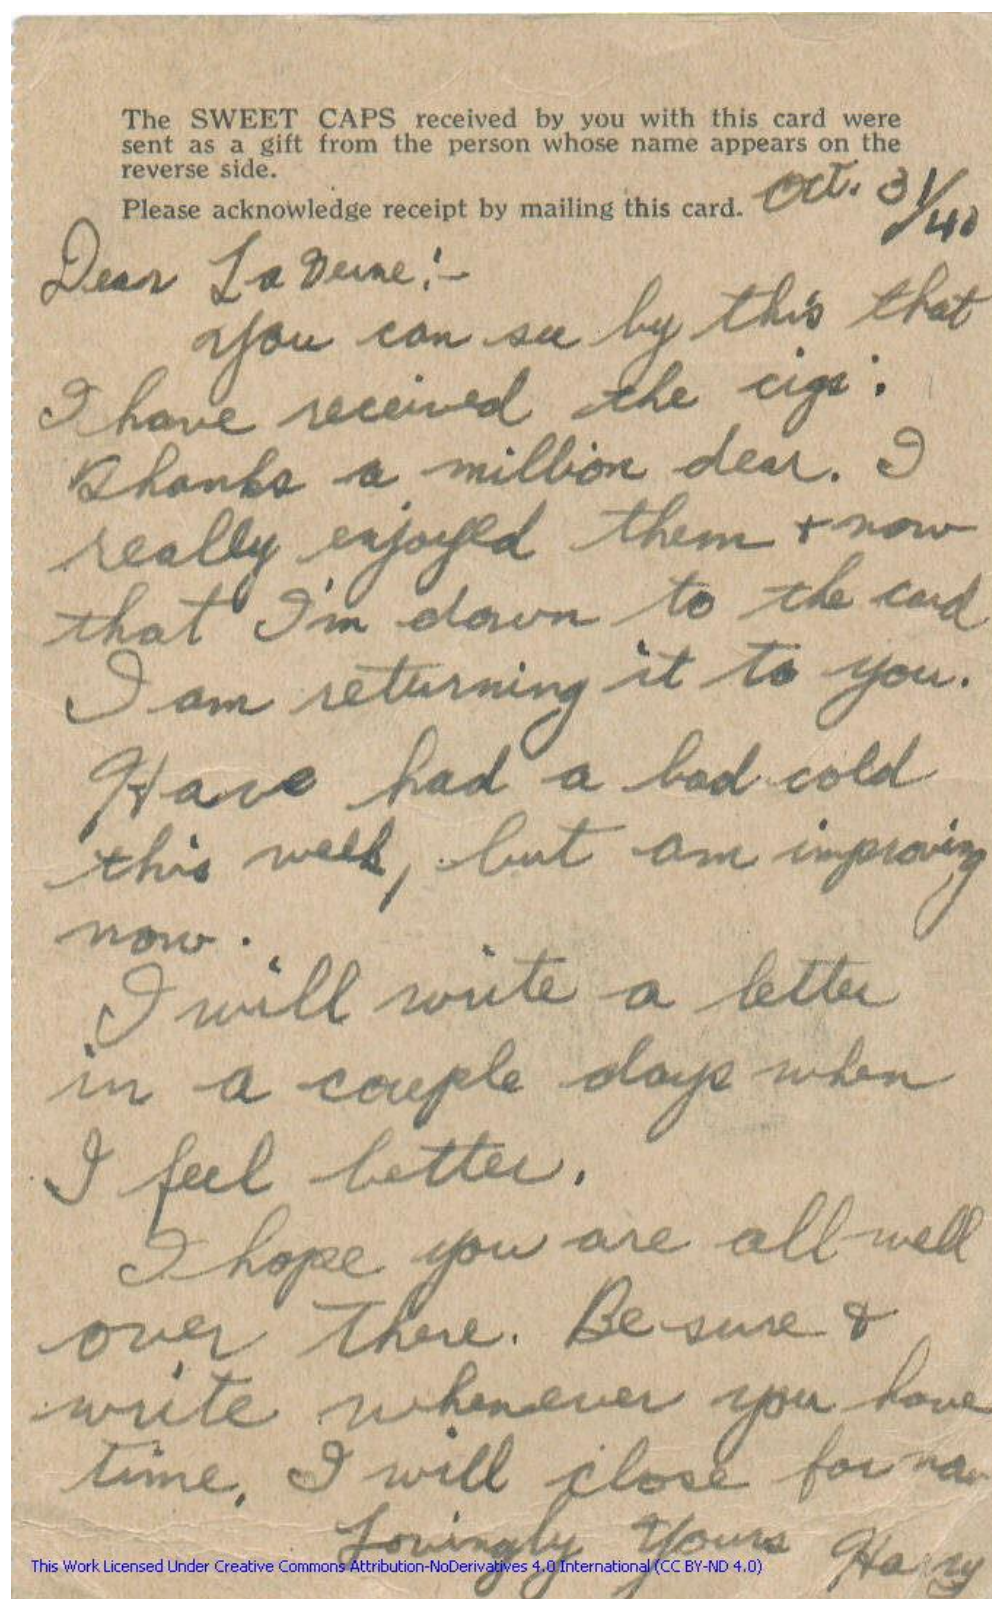 The SWEET CAPS received by you with this card were
sent as a gift from the person whose name appears on the
reverse side.
Please acknowledge receipt by mailing this card.
Oct. 31/40
Dear La Verne:-
You can see by this that
I have received the cigs.
Thanks a million dear. I
really enjoyed them + now
that I'm down to the card
I am returning it to you.
Have had a bad cold
this week, but am improving
now.
I will write a letter
in a couple days when
I feel better.
I hope you are all well
over there. Be sure &
write whenever you have
time. I will close for now
Lovingly Yours Harry
This Work Licensed Under Creative Commons Attribution-NoDerivatives 4.0 International (CC BY-ND 4.0)